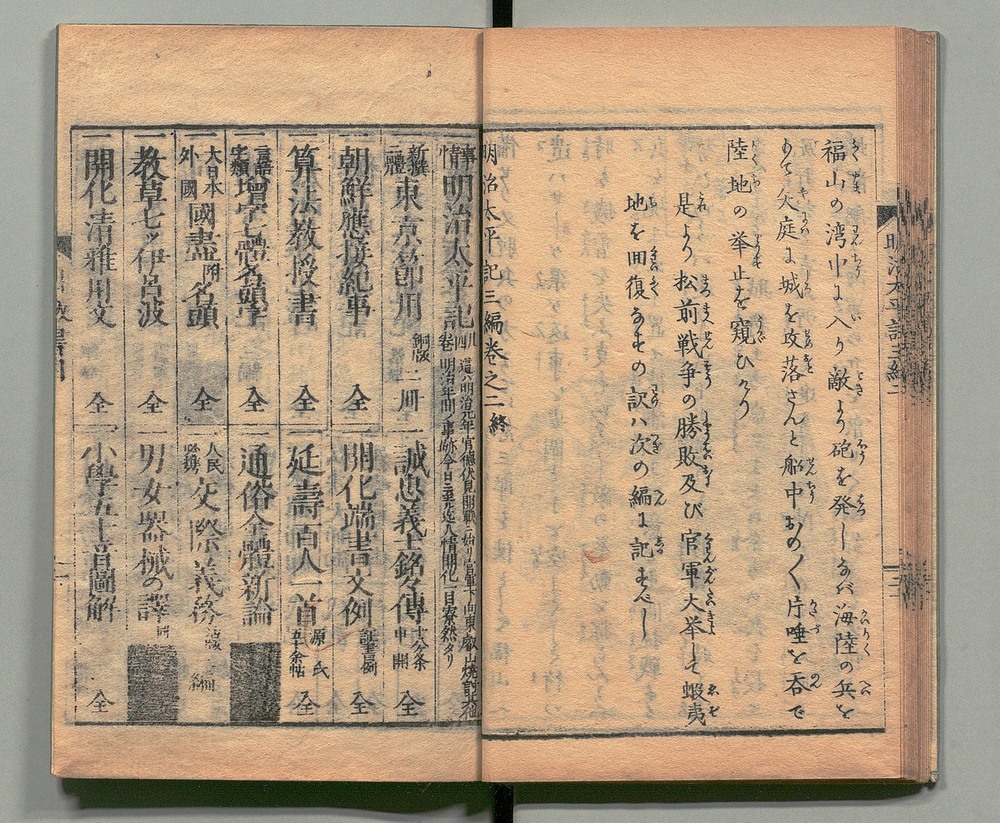 福山の湾中に入り敵より砲を発しなバ海陸の兵を
もて大庭に城を攻落さんと船中おのく片唾を呑で
陸地の挙止を窺ひけり
是より松前戦争の勝敗及び官軍大挙して蝦夷
地を回復なすの訳ハ次の編に記すべし
明治太平記三編巻之二終
明治太平記
新撰二體東京節用 銅版 二冊
一誠忠義士銘々傳 全
一朝鮮應接紀事 全
一開化端書文例 全
一算法教授書 全
一延壽百人一首 源氏五十余帖 全
一言語字類増字七體名頭字 全
一通俗全體新論
一大日本外國國盡 附名頭 全
一人民必携交際義務
一教草七ツ伊呂波 全
一男女器械の譯
一開化清雅用文 全
一小學五十音圖解 全